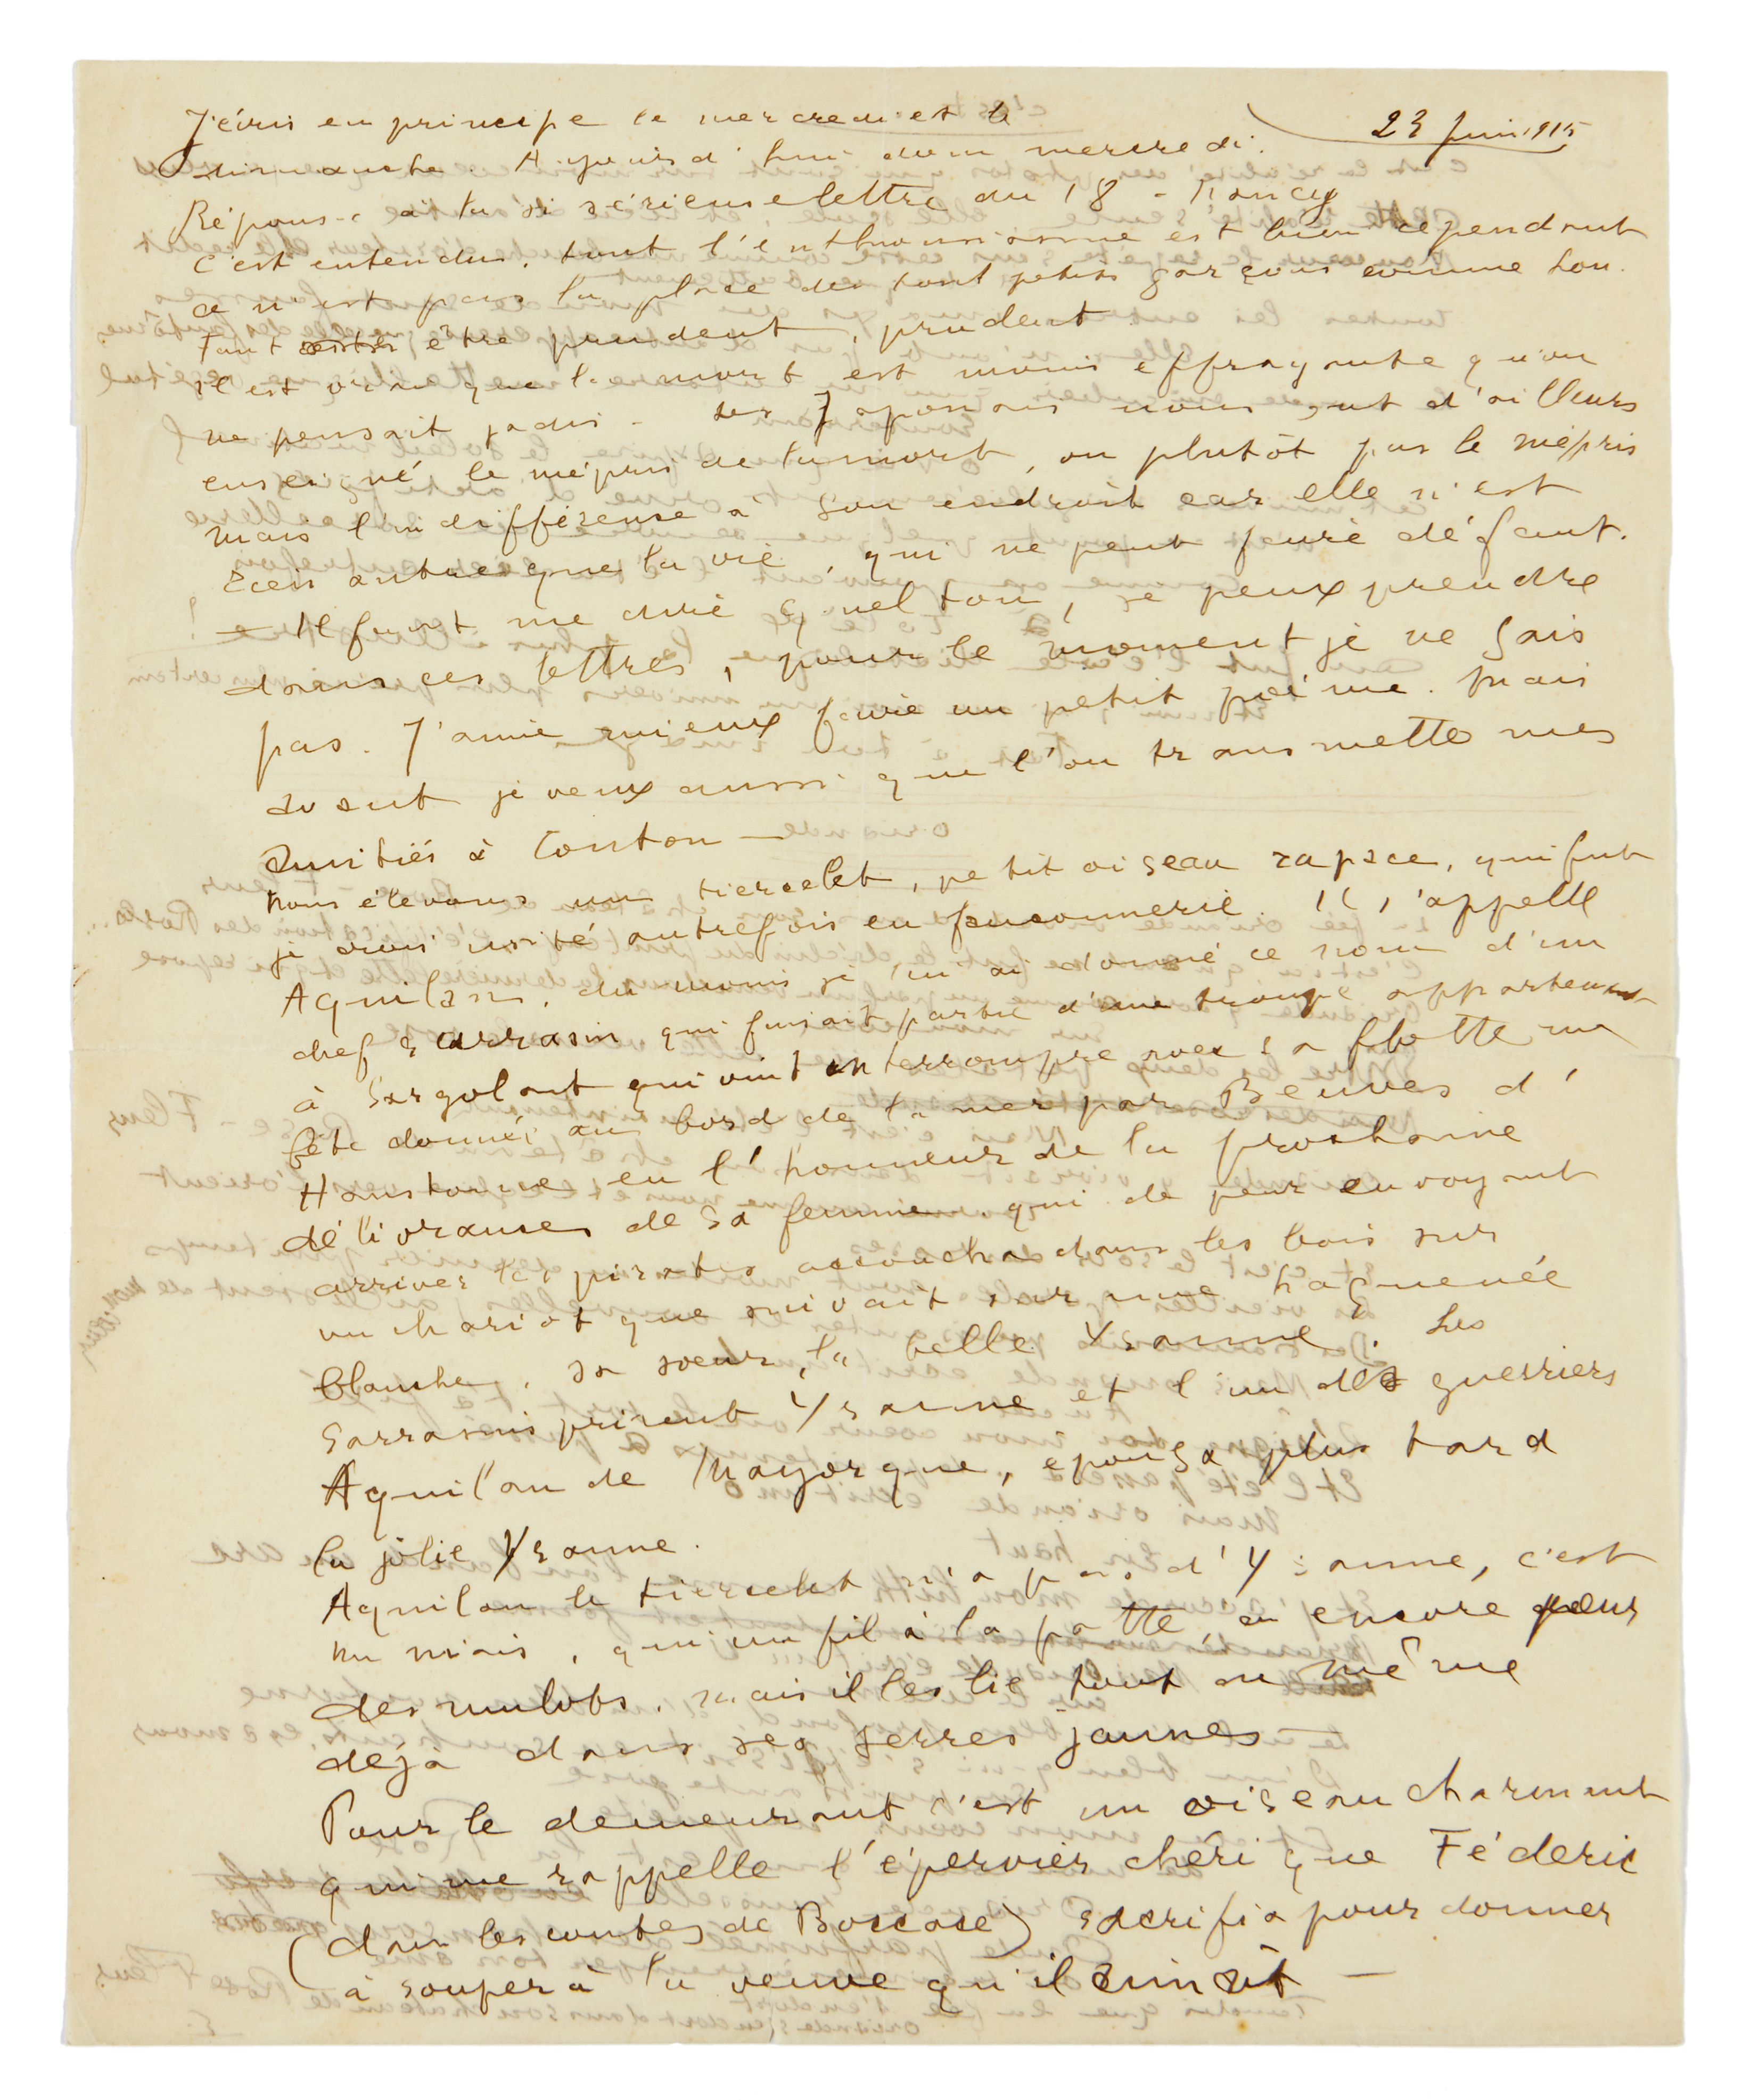 23 Juin 1915
J'écris en principe le mercredi et le
dimanche. Aujourd'hui donc mercredi.
Réponse à ta si sérieuse lettre du 18 - Nancy
c'est entendu, tout l'enthousiasme est bien cependant
ce n'est pas la place des tout petits garçons comme Lou.
Faut être prudent, prudent.
Il est vrai que la mort est moins effrayante qu'on
ne pensait jadis - Les Japonais nous ont d'ailleurs
enseigné le mépris de la mort, ou plutôt pas le mépris
mais l'indifférence à son endroit car elle n'est
rien autre que la vie, qui ne peut faire défaut.
— Il faut me dire quel ton, je peux prendre
dans ces lettres, pour le moment je ne sais
pas. J'aime mieux faire un petit poème. Mais
avant je veux aussi que l'on transmette mes
amitiés à Toutou —
Nous élevons un tiercelet, petit oiseau rapace, qui fut
je crois usité autrefois en fauconnerie. Il s'appelle
Aquilan, du moins je lui ai donné ce nom d'un
chef sarrasin qui faisait partie d'une troupe appartenant
à Sorgalant qui vint interrompre avec sa flotte une
fête donnée au bord de la mer par Beuves d'
Hanstonne en l'honneur de la prochaine
délivrance de sa femme qui de peur en voyant
arriver les pirates accoucha dans les bois sur
un chariot que suivait sur une haquenée
blanche, sa soeur, la belle Ysanne. Les
Sarrasins prirent Ysanne et l'un des guerriers
Aquilan de Mayorque, épousa plus tard
la jolie Ysanne.
Aquilan le tiercelet n'a pas d'Ysanne, c'est
un niais, qui un fil à la patte, a encore peur
des mulots, mais il les lie tout de même
déjà dans ses serres jaunes
Pour le demeurant c'est un oiseau charmant
qui me rappelle l'épervier chéri que Féderic
(dans les contes de Boccace) sacrifia pour donner
à souper à la veuve qu'il aimait —